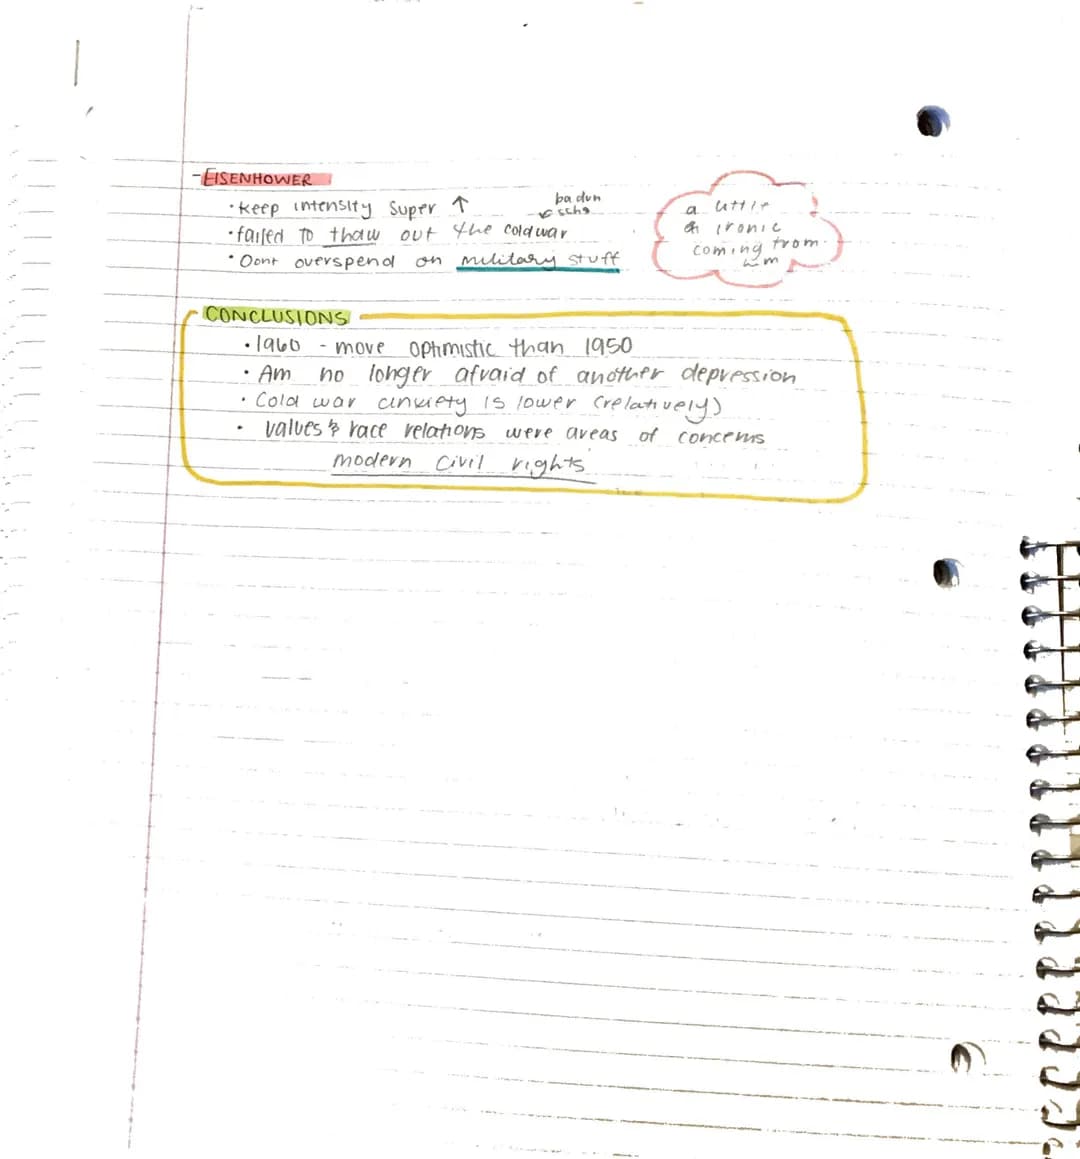 - EISENHOWER
• keep intensity super ↑
ba dun
↙ schs
• failed to thaw out the cold war
• Dont overspend on military stuff
a little
ironic
coming from
him
CONCLUSIONS
• 1960 - more optimistic than 1950
• Am no longer afraid of another depression
• Cold war anxiety is lower (relatively)
• values & race relations were areas of concerns
modern civil rights